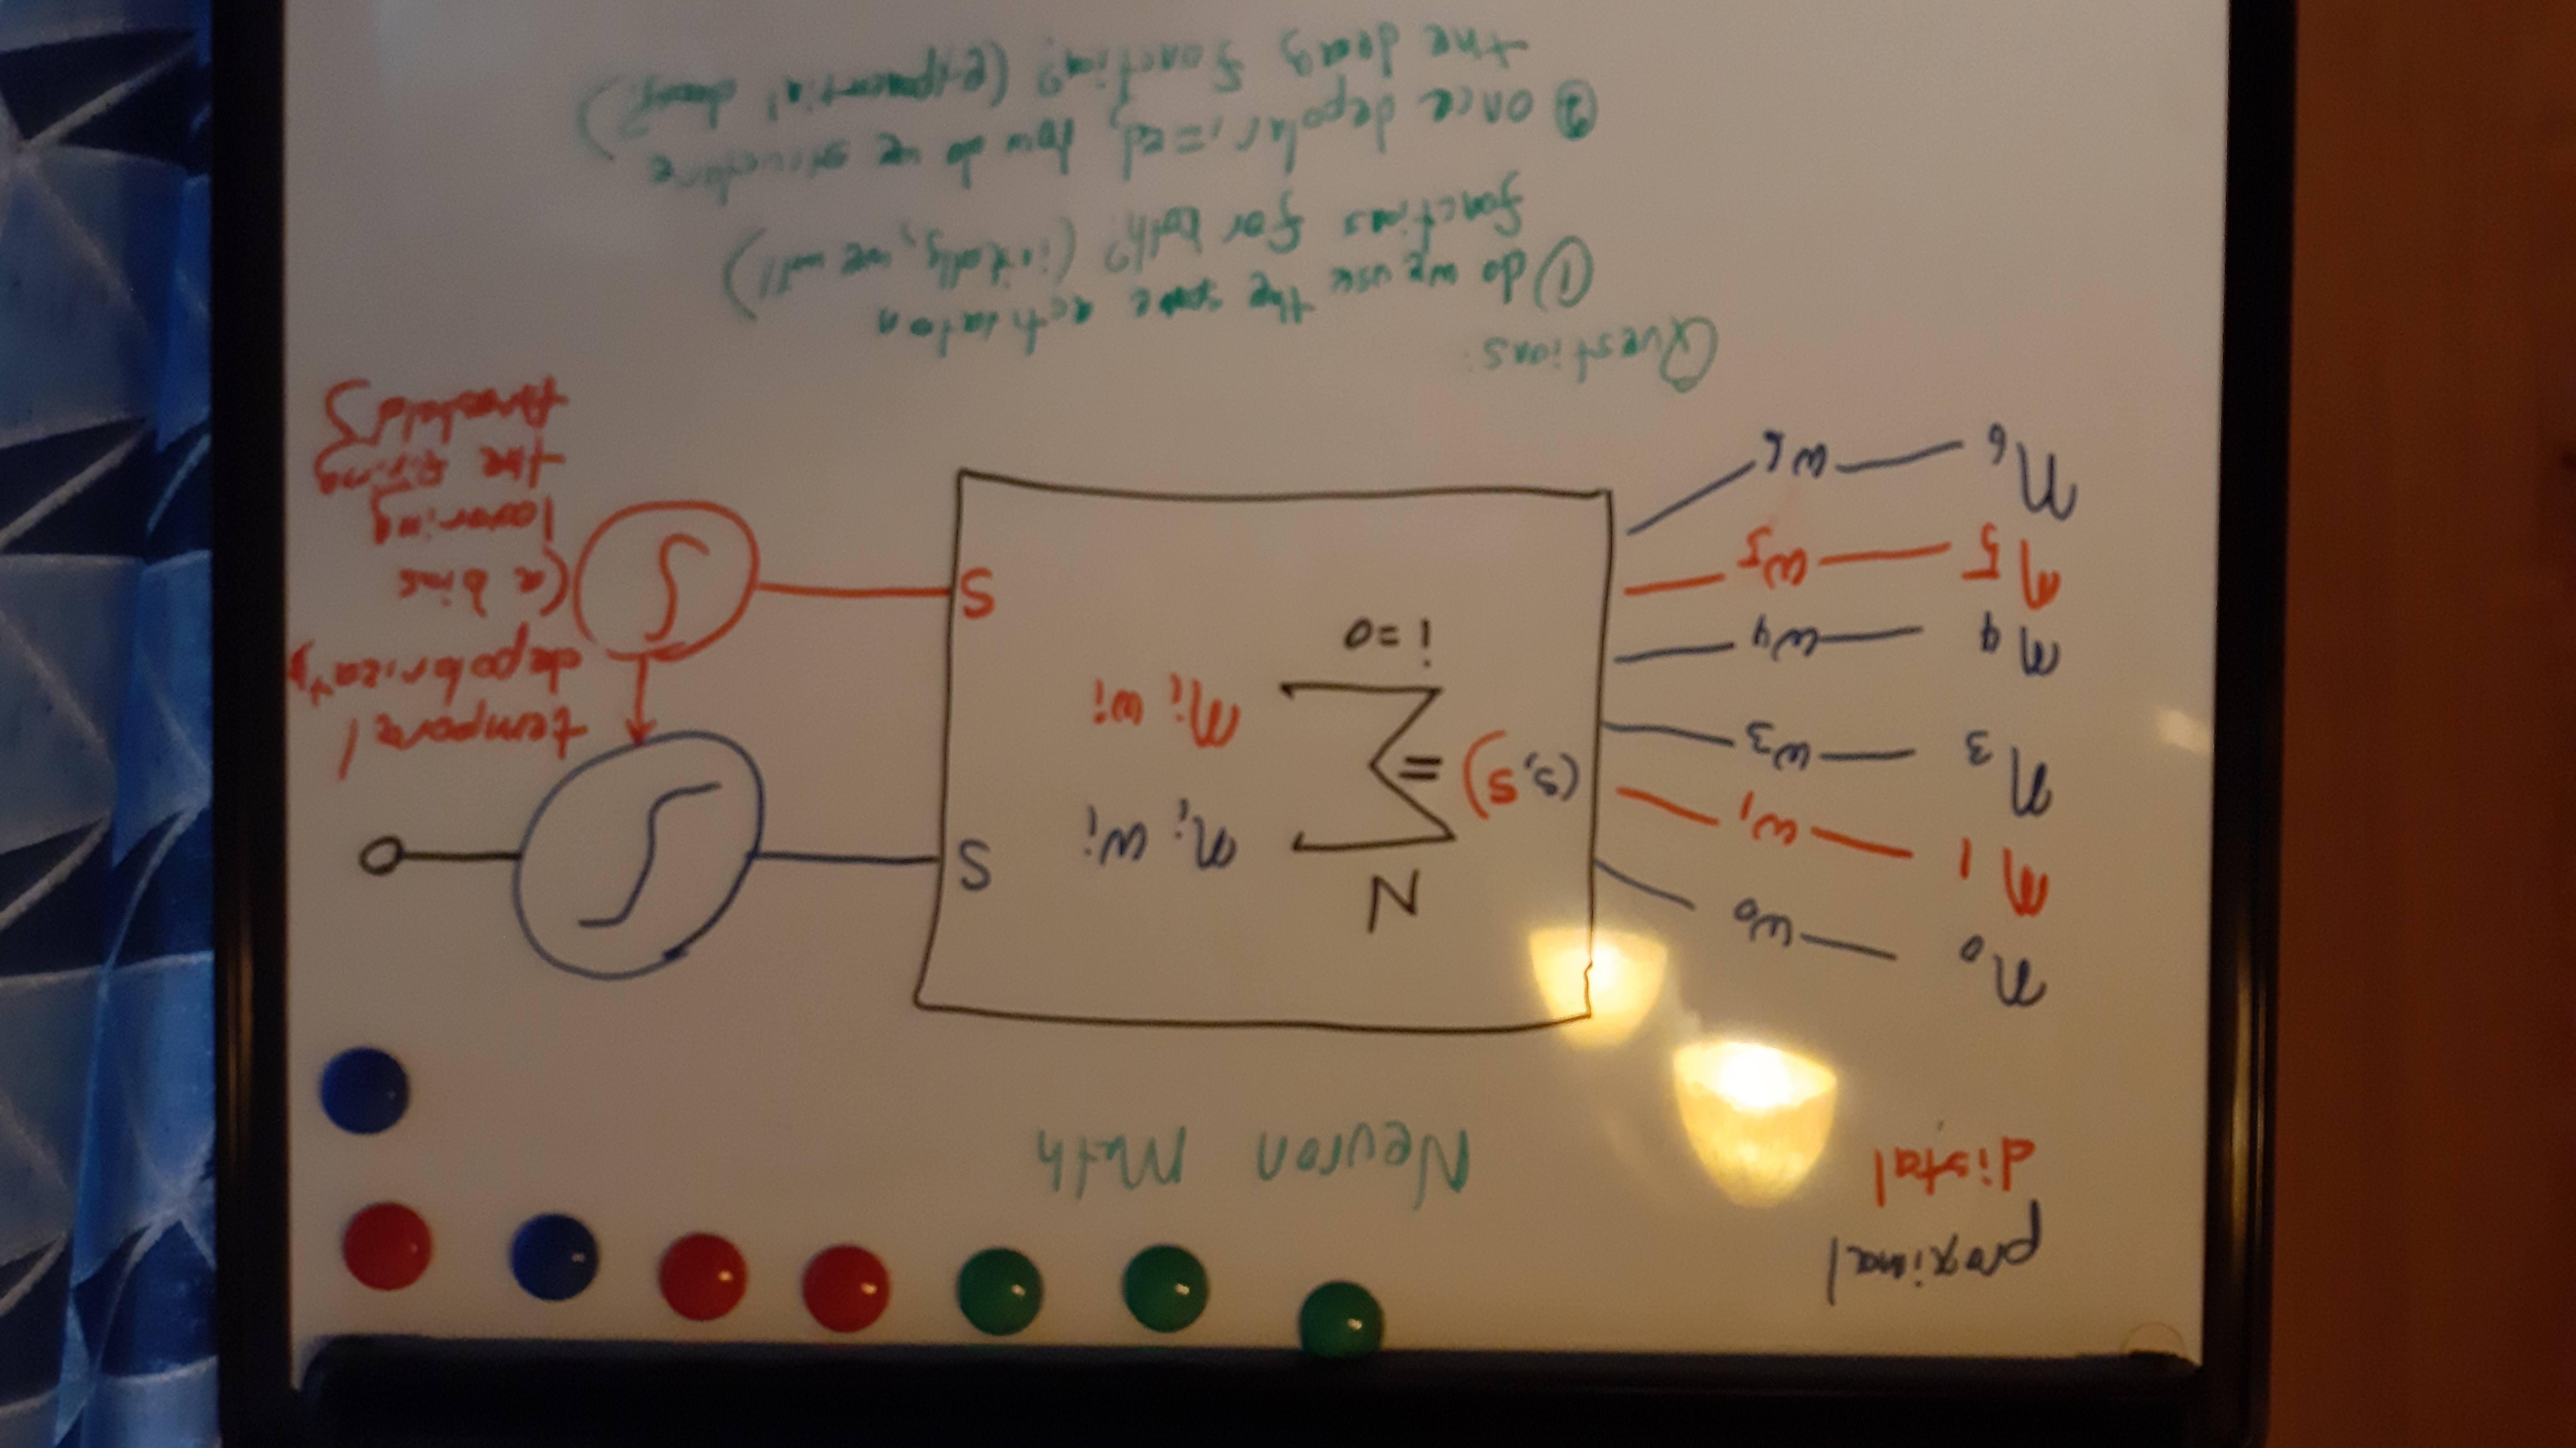 proximal
distal
Neuron Math
n0 — w0
n1 — w1
n3 — w3
n4 — w4
n5 — w5
n6 — w6
(s, s) = N ∑ i=0
ni wi
ni wi
S
S
temporal
depolarizat
(a bias
lowering
the firing
threshold)
Questions:
① do we use the same activaton
functions for both? (initally, we will)
② once depolarized, how do we structure
the decay function? (exponential decay?)